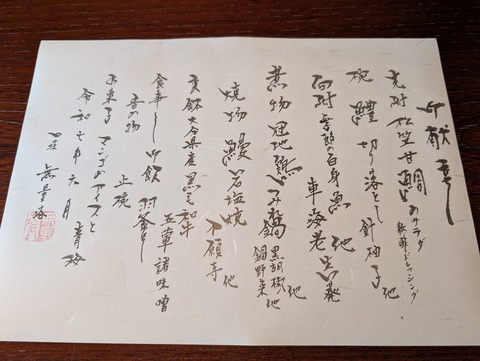 御献立
先附 松笠甘鯛のサラダ
ドレッシング
椀 鱧 切り落とし 針柚子 他
向附 季節の白身魚 他
車海老 生山葵
煮物 鍋 黒胡椒 他
鍋野菜 他
焼物 鰻岩塩焼 万願寺 他
大分県産黒毛和牛
諸味噌
食事 御飯 羽釜
香の物 止椀
水菓子 マンゴのアイスと 青梅
令和七年六月
山荘 無量塔